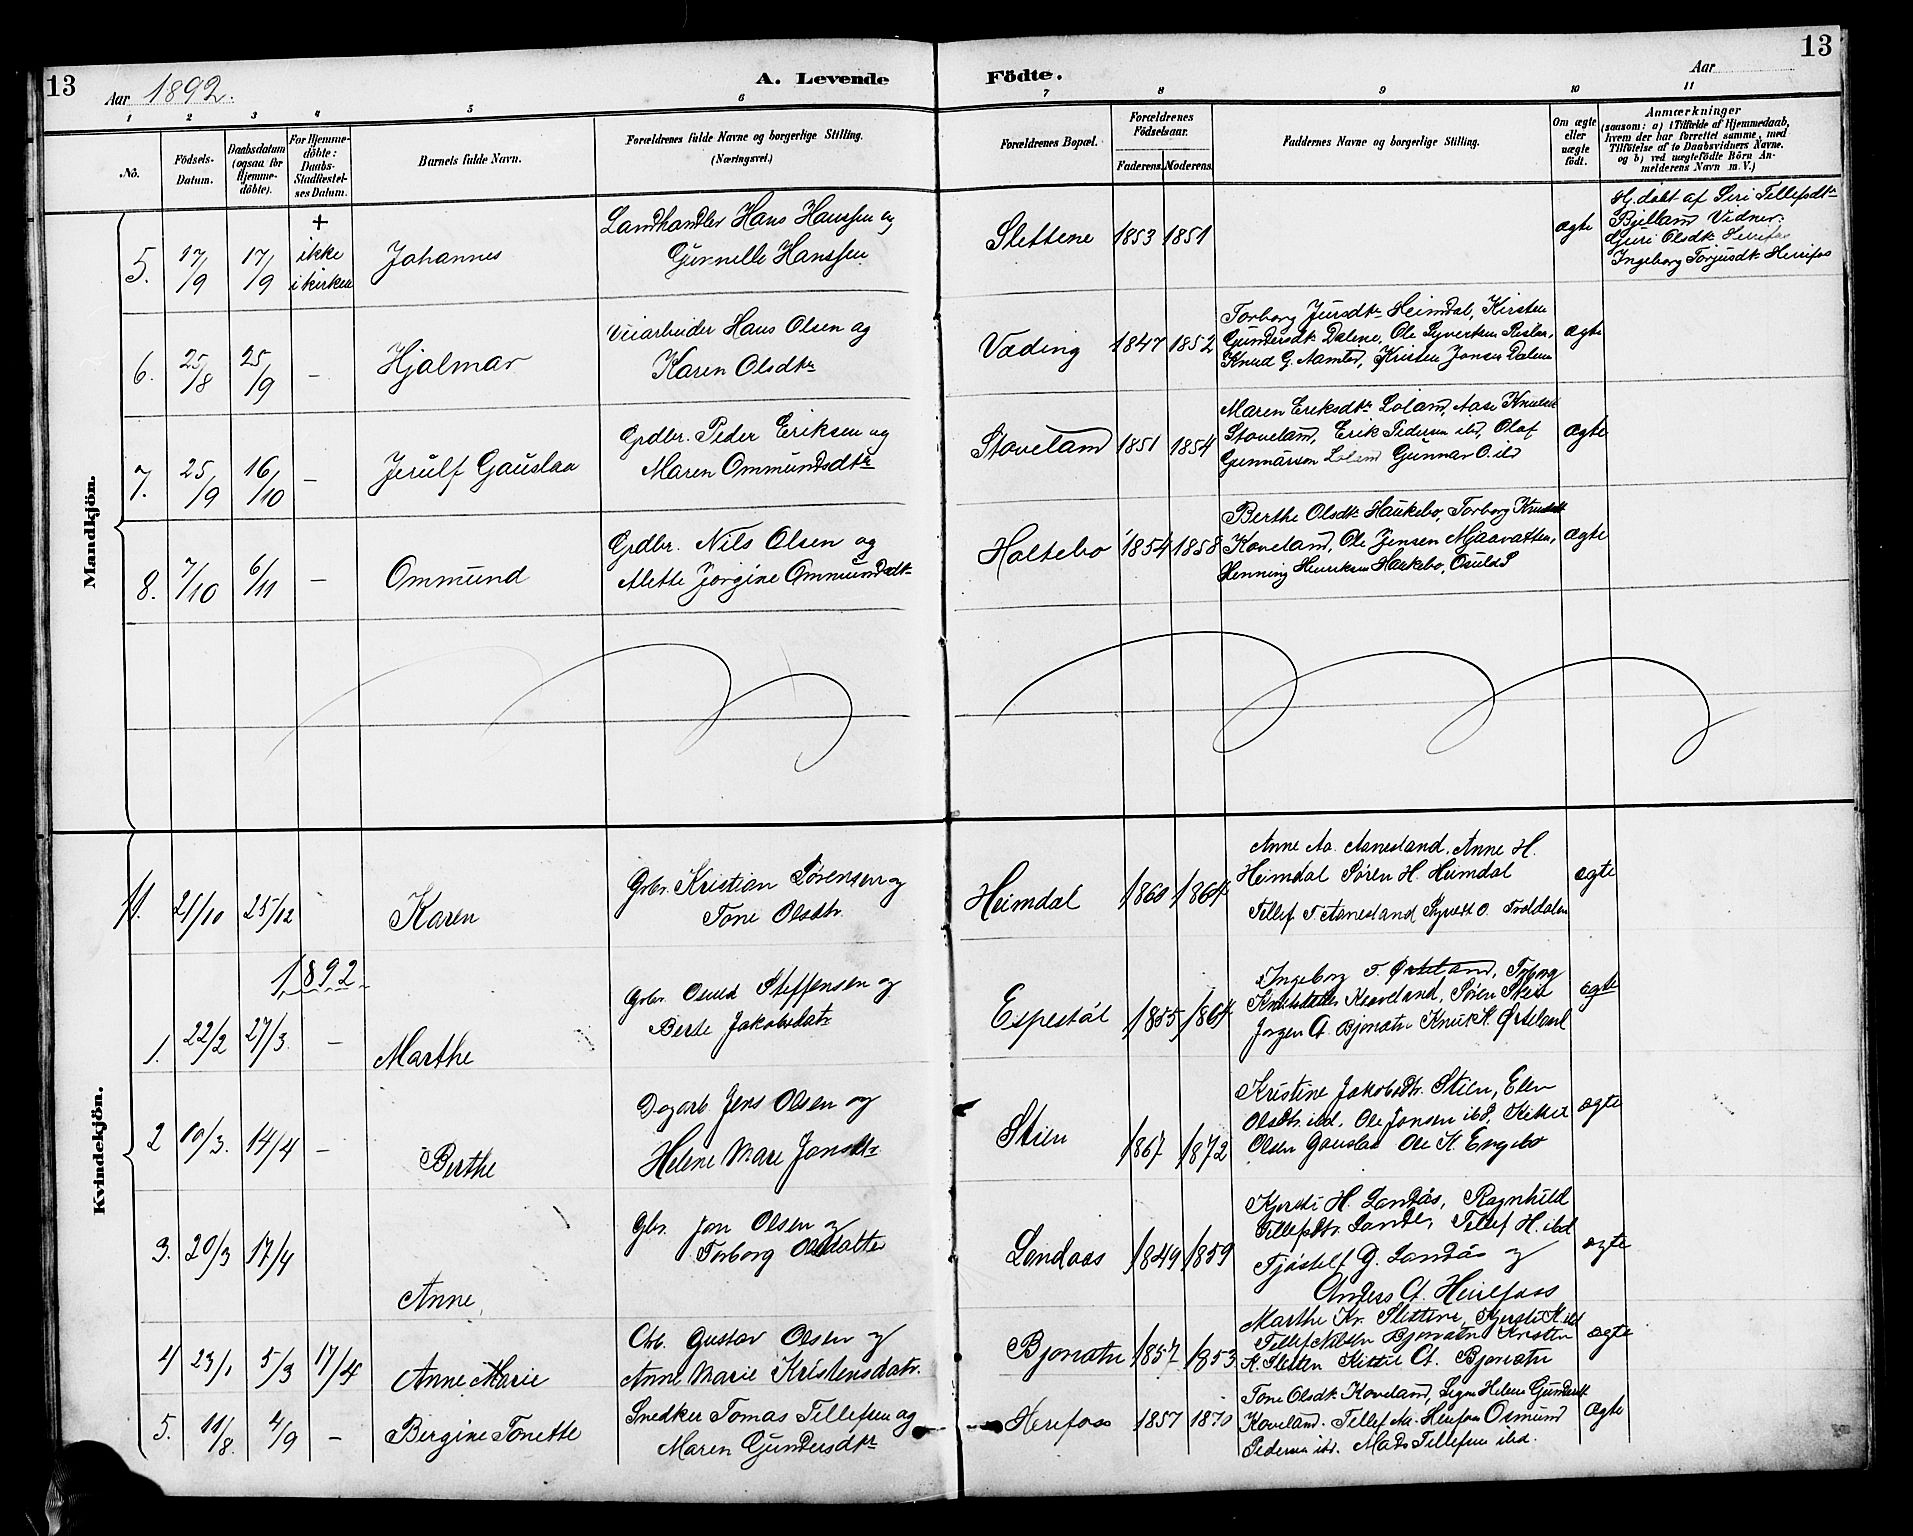 13
Aar 1892.
A. Levende Födte.
Aar
13
1 2 3 4 5 6 7 8 9 10 11
No.
Födsels-Datum.
Daabsdatum (ogsaa for Hjemme-döbte).
For Hjemme-döbte: Daabs-Stadfæstelses Datum.
Barnets fulde Navn.
Forældrenes fulde Navne og borgerlige Stilling. (Næringsvei.)
Forældrenes Bopæl.
Forældrenes Födselsaar.
Faderens. Moderens.
Faddernes Navne og borgerlige Stilling.
Om ægte eller uægte födt.
Anmærkninger
(saasom: a) i Tilfælde af Hjemmedaab,
hvem der har forrettet samme, med
Tilföielse af to Daabsvidners Navne.
og b) ved uægtefödte Börn An-
melderens Navn m. V.)
Mandkjön.
5. 17/9 17/9 + ikke i kirken Johannes
Landhandler Hans Hanssen og
Gunnelle Hanssen
Slettene 1853 1851 ægte
H.döbt af Siri Tellefsdtr
Bjelland Vidner:
Guri Olsdtr
Ingeborg Torjusdtr Herefos
6. 25/8 25/9 – Hjalmar
Veiarbeider Hans Olsen og
Karen Olsdtr
Vading 1847 1852
Torborg Jursdtr Heimdal, Kirsten
Gundersdtr Dalene, Ole Syvertsen
Knud G. Aamter, Kristen Jonsen Dalene
ægte
7. 25/9 16/10 – Jerulf Gauslaa
Grdbr. Peder Eriksen og
Maren Ommundsdtr
Stoveland 1851 1854
Maren Eriksdtr Loland, Aase Knutsdtr
Stoveland, Erik Pedersen ibd, Olaf
Gunnarson Loland Gunnar O. ibd
ægte
8. 7/10 6/11 – Ommund
Grdbr. Nils Olsen og
Mette Jorgine Ommundsdtr
Holtebo 1854 1858
Berthe Olsdtr Haukebo, Torborg Knudsdtr
Koveland, Ole Jensen Mjaavatten,
Henning Henriksen Haukebo,
ægte
Kvindekjön.
11. 21/10 25/12 Karen
Grbr. Kristian Sørensen og
Tone Olsdtr.
Heimdal 1860 1864
Anne Aa. Aanesland. Anne H.
Heimdal Søren H. Heimdal
Tellef T Aanesland Syvert O. Troldalen
ægte
1892
1. 22/2 27/3 – Marthe
Grbr. Osuld Steffensen og
Berte Jakobsdatr
Espestöl 1855 1864
Ingeborg T. Østeland, Torborg
Knutsdatter Kaaveland, Søren Skeid
Jorgen A. Bjorvatn Knut K. Østeland
ægte
2 10/3. 14/4 – Berthe
Dagarb Jens Olsen og
Helene Mare Jonsdtr
Stien 1867 1872
Kristine Jakobsdtr. Stien, Elen
Olsdtr. ibd. Ole Jonsen ibd, Kittel
Olsen Gauslaa Ole K. Engebo
ægte
3. 20/3 17/4 Anne,
Gbr. Jon Olsen og
Torborg Olsdatter
Lendaas 1849 1859
Kjersti H. Landås, Ragnhild
Tellefsdtr. Landås, Tellef H. ibd
Tjöstelf G. Landås og
Anders A. Heirefoss
ægte
4 23/1 5/3 17/4 Anne Marie
Gustav Olsen og
Anne Marie Kristensdatr.
Bjorvatn 1857 1853
Marthe Kr. Slettene, Kjersti K. ibd
Tellef Nilsen Bjorvatn Kristen
K. Sletten Kittil A. Bjorvatn
ægte
5. 11/8. 4/9 – Bergine Tonette
Snedker Tomas Tellefsen og
Maren Gundersdtr
Herefoss 1857 1870
Tone Olsdtr Koveland, Signe Helene Gundersdtr
Koveland. Tellef Aa. Herefoss Osmund
Pedersen ibd. Mads Tellefsen ibd.
ægte